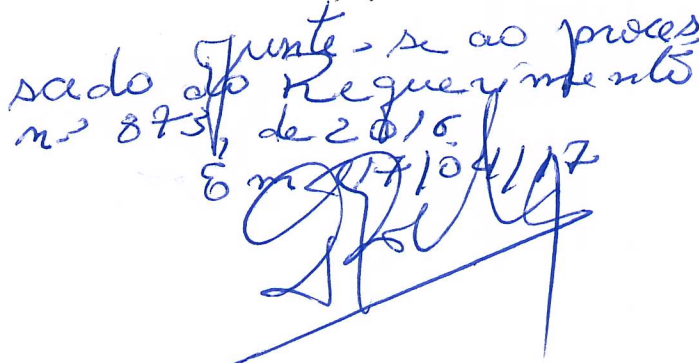 Junte-se ao proces
sado do Requerimento
nº 873, de 2016
Em 17/04/17